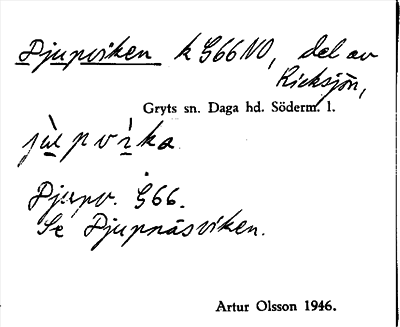 Djupviken k G66NO, del av
Ricksjön,
Gryts sn. Daga hd. Söderm. l.
jùpvìka
Djupv. G66.
Se Djupnäsviken.
Artur Olsson 1946.